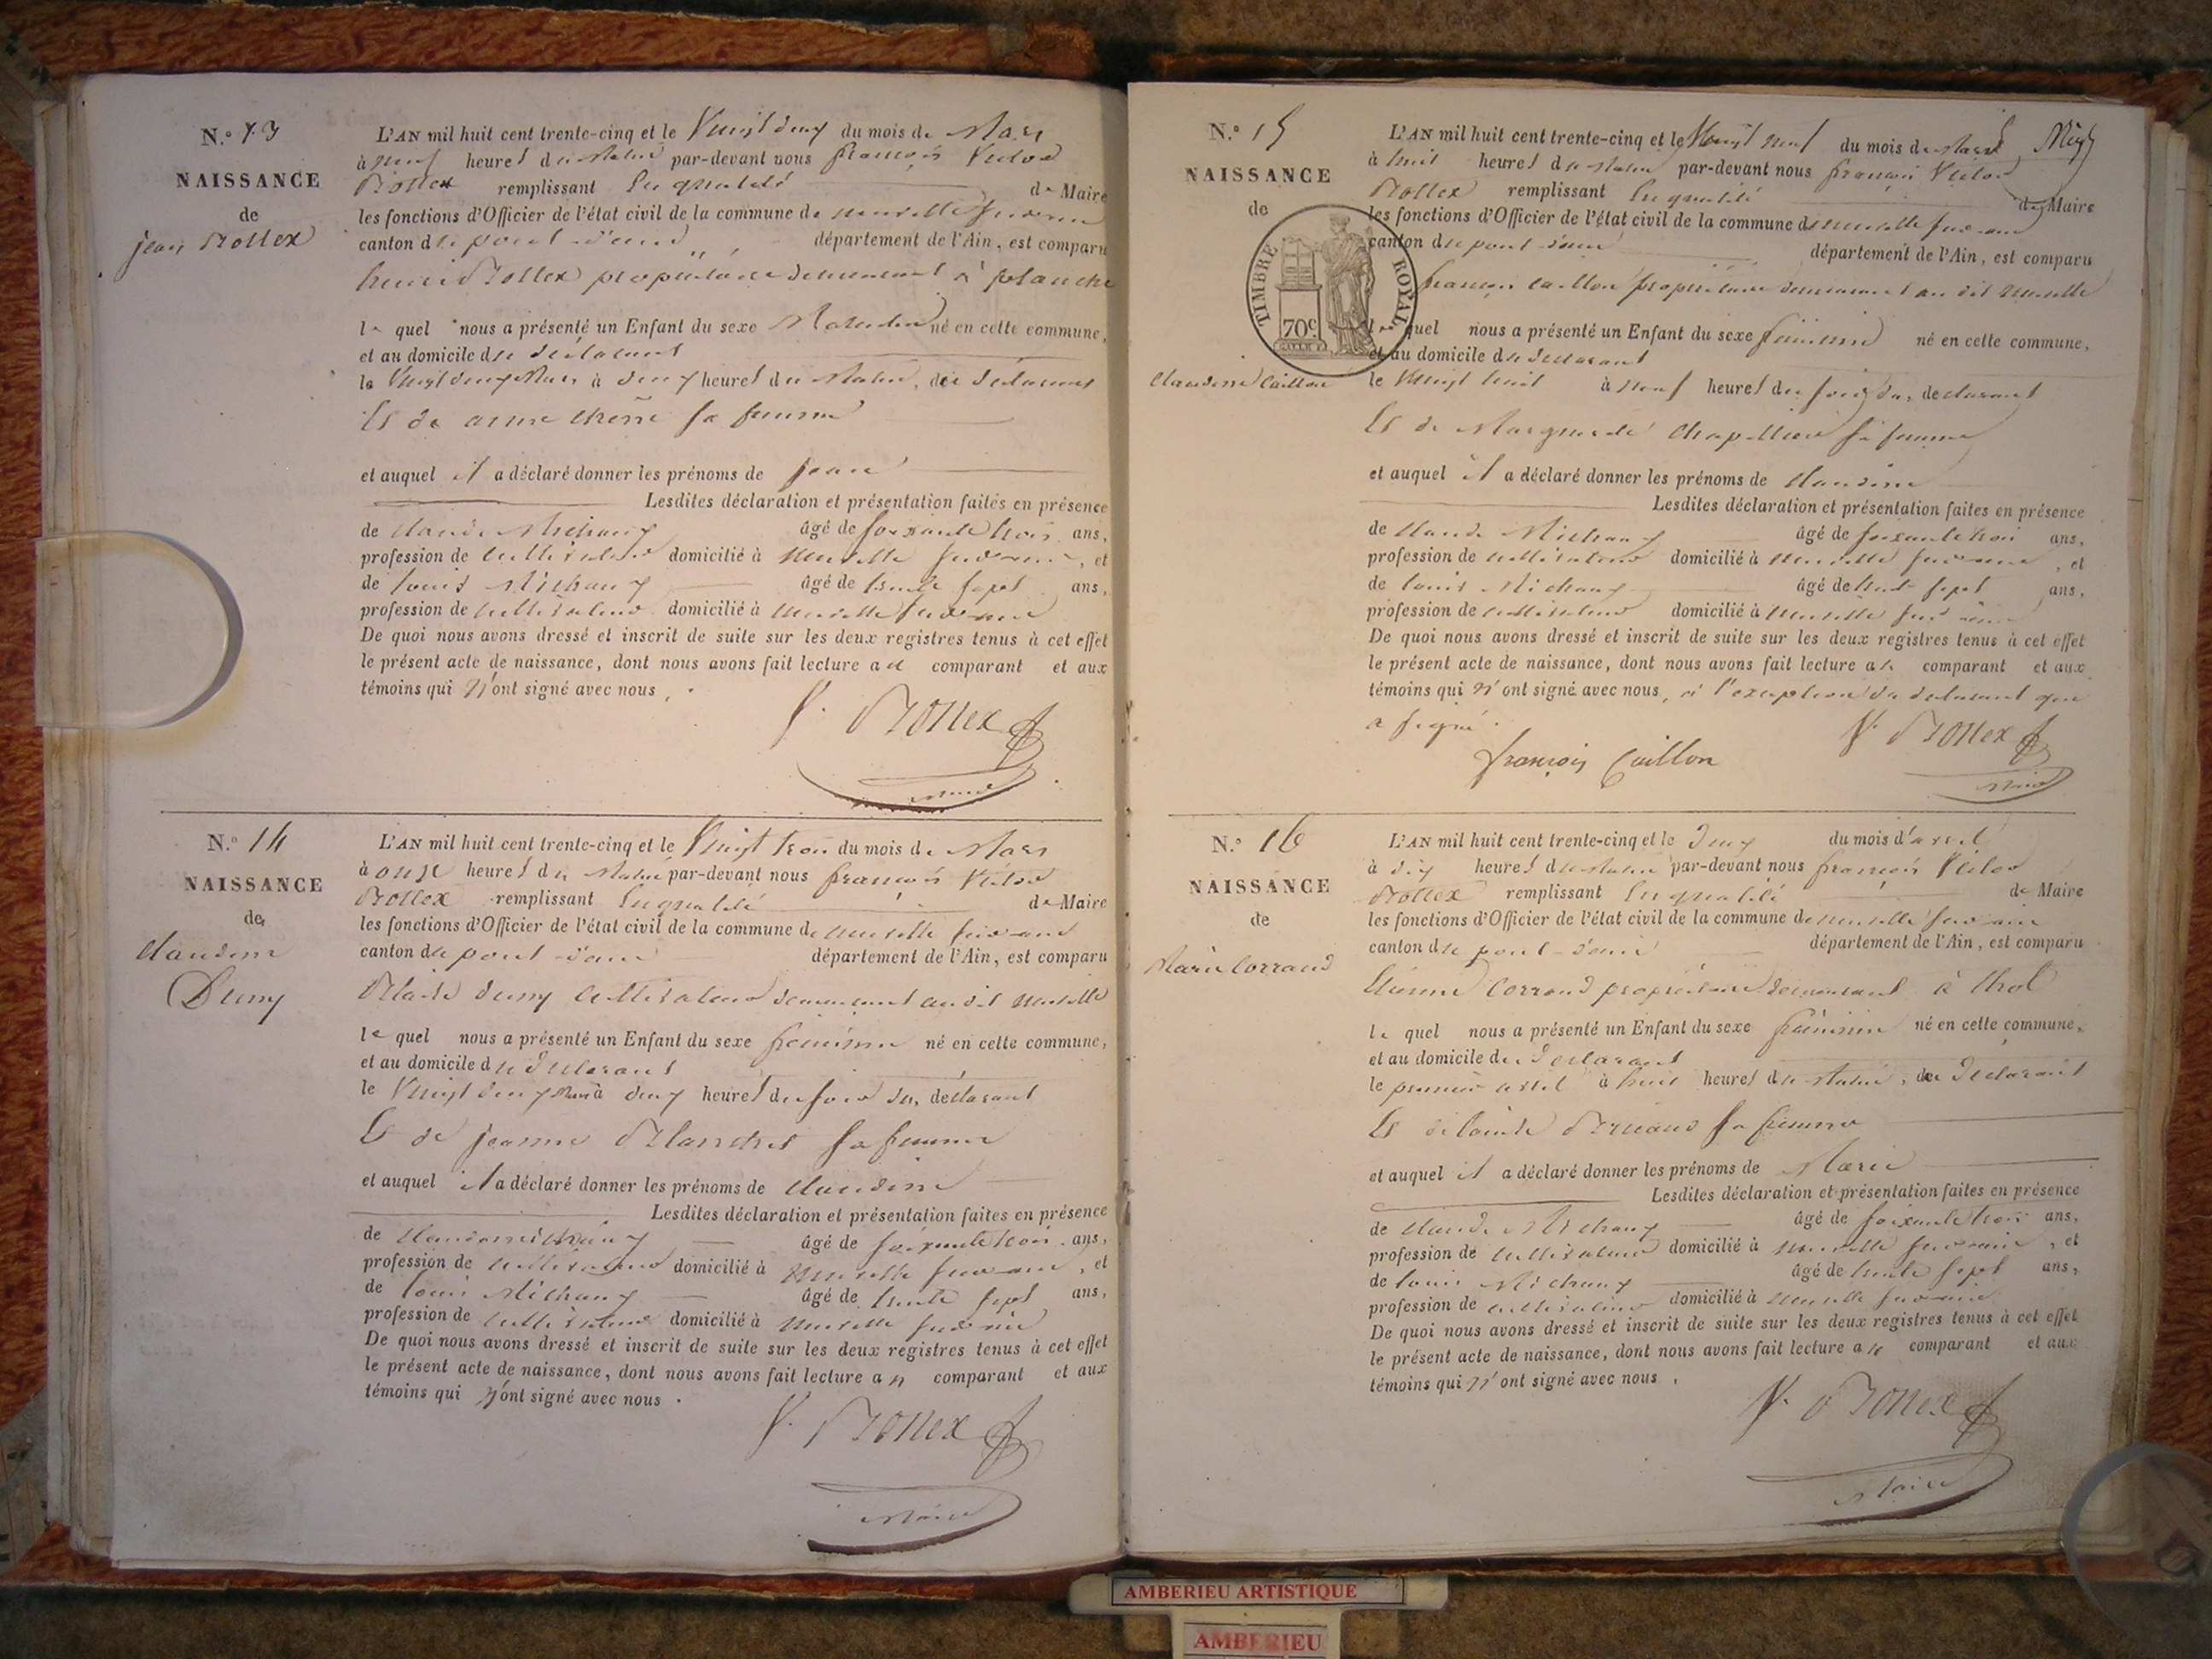 N.° 13
NAISSANCE
de
jean Bollex
L'AN mil huit cent trente-cinq et le Vingt deux du mois de Mars
à neuf heures du Matin par-devant nous françois Victor
Bollex remplissant En qualité de Maire
les fonctions d'Officier de l'état civil de la commune de neuville sur ain
canton de pont d'ain département de l'Ain, est comparu
Bollex propriétaire demeurant à planche
le quel nous a présenté un Enfant du sexe Masculin né en cette commune,
et au domicile du déclarant
le Vingt deux Mars à deux heures du Matin, du déclarant
Et de anne sa femme
et auquel il a déclaré donner les prénoms de jean
Lesdites déclaration et présentation faites en présence
de claude Michaux âgé de soixante trois ans,
profession de cultivateur domicilié à neuville sur ain, et
de louis Michaux âgé de trente sept ans,
profession de cultivateur domicilié à neuville sur ain
De quoi nous avons dressé et inscrit de suite sur les deux registres tenus à cet effet
le présent acte de naissance, dont nous avons fait lecture au comparant et aux
témoins qui n'ont signé avec nous.
V. Bollex
Maire
N.° 14
NAISSANCE
de
claudine
Dumy
L'AN mil huit cent trente-cinq et le Vingt trois du mois de Mars
à onze heures du Matin par-devant nous françois Victor
Bollex remplissant En qualité de Maire
les fonctions d'Officier de l'état civil de la commune de neuville sur ain
canton de pont d'ain département de l'Ain, est comparu
cultivateur demeurant au dit neuville
le quel nous a présenté un Enfant du sexe féminin né en cette commune,
et au domicile du déclarant
le Vingt deux Mars à deux heures du soir du, déclarant
Et de jeanne sa femme
et auquel il a déclaré donner les prénoms de claudine
Lesdites déclaration et présentation faites en présence
de claude Michaux âgé de soixante trois ans,
profession de cultivateur domicilié à neuville sur ain, et
de louis Michaux âgé de trente sept ans,
profession de cultivateur domicilié à neuville sur ain
De quoi nous avons dressé et inscrit de suite sur les deux registres tenus à cet effet
le présent acte de naissance, dont nous avons fait lecture au comparant et aux
témoins qui n'ont signé avec nous.
V. Bollex
Maire
N.° 15
NAISSANCE
de
TIMBRE ROYAL
70c
claudine Caillon
L'AN mil huit cent trente-cinq et le Vingt neuf du mois de Mars
à huit heures du Matin par-devant nous françois Victor
Bollex remplissant En qualité de Maire
les fonctions d'Officier de l'état civil de la commune de neuville sur ain
canton de pont d'ain département de l'Ain, est comparu
françois caillon propriétaire demeurant au dit neuville
le quel nous a présenté un Enfant du sexe féminin né en cette commune,
et au domicile du declarant
le Vingt huit à neuf heures du soir, du, declarant
Et de Marguerite sa femme
et auquel il a déclaré donner les prénoms de claudine
Lesdites déclaration et présentation faites en présence
de claude Michaux âgé de soixante trois ans,
profession de cultivateur domicilié à neuville sur ain, et
de louis Michaux âgé de trente sept ans,
profession de cultivateur domicilié à neuville sur ain
De quoi nous avons dressé et inscrit de suite sur les deux registres tenus à cet effet
le présent acte de naissance, dont nous avons fait lecture au comparant et aux
témoins qui n'ont signé avec nous, à l'exception du declarant qui
a signé.
françois Caillon
V. Bollex
Maire
N.° 16
NAISSANCE
de
Marie Corrand
L'AN mil huit cent trente-cinq et le deux du mois d'avril
à dix heures du Matin par-devant nous françois Victor
Bollex remplissant En qualité de Maire
les fonctions d'Officier de l'état civil de la commune de neuville sur ain
canton de pont d'ain département de l'Ain, est comparu
Etienne Corrand propriétaire demeurant à thol
le quel nous a présenté un Enfant du sexe féminin né en cette commune,
et au domicile du declarant
le premier avril à huit heures du Matin, du declarant
Et de sa femme
et auquel il a déclaré donner les prénoms de Marie
Lesdites déclaration et présentation faites en présence
de claude Michaux âgé de soixante trois ans,
profession de cultivateur domicilié à neuville sur ain, et
de louis Michaux âgé de trente sept ans,
profession de cultivateur domicilié à neuville sur ain
De quoi nous avons dressé et inscrit de suite sur les deux registres tenus à cet effet
le présent acte de naissance, dont nous avons fait lecture au comparant et aux
témoins qui n'ont signé avec nous.
V. Bollex
Maire
AMBERIEU ARTISTIQUE
AMBERIEU